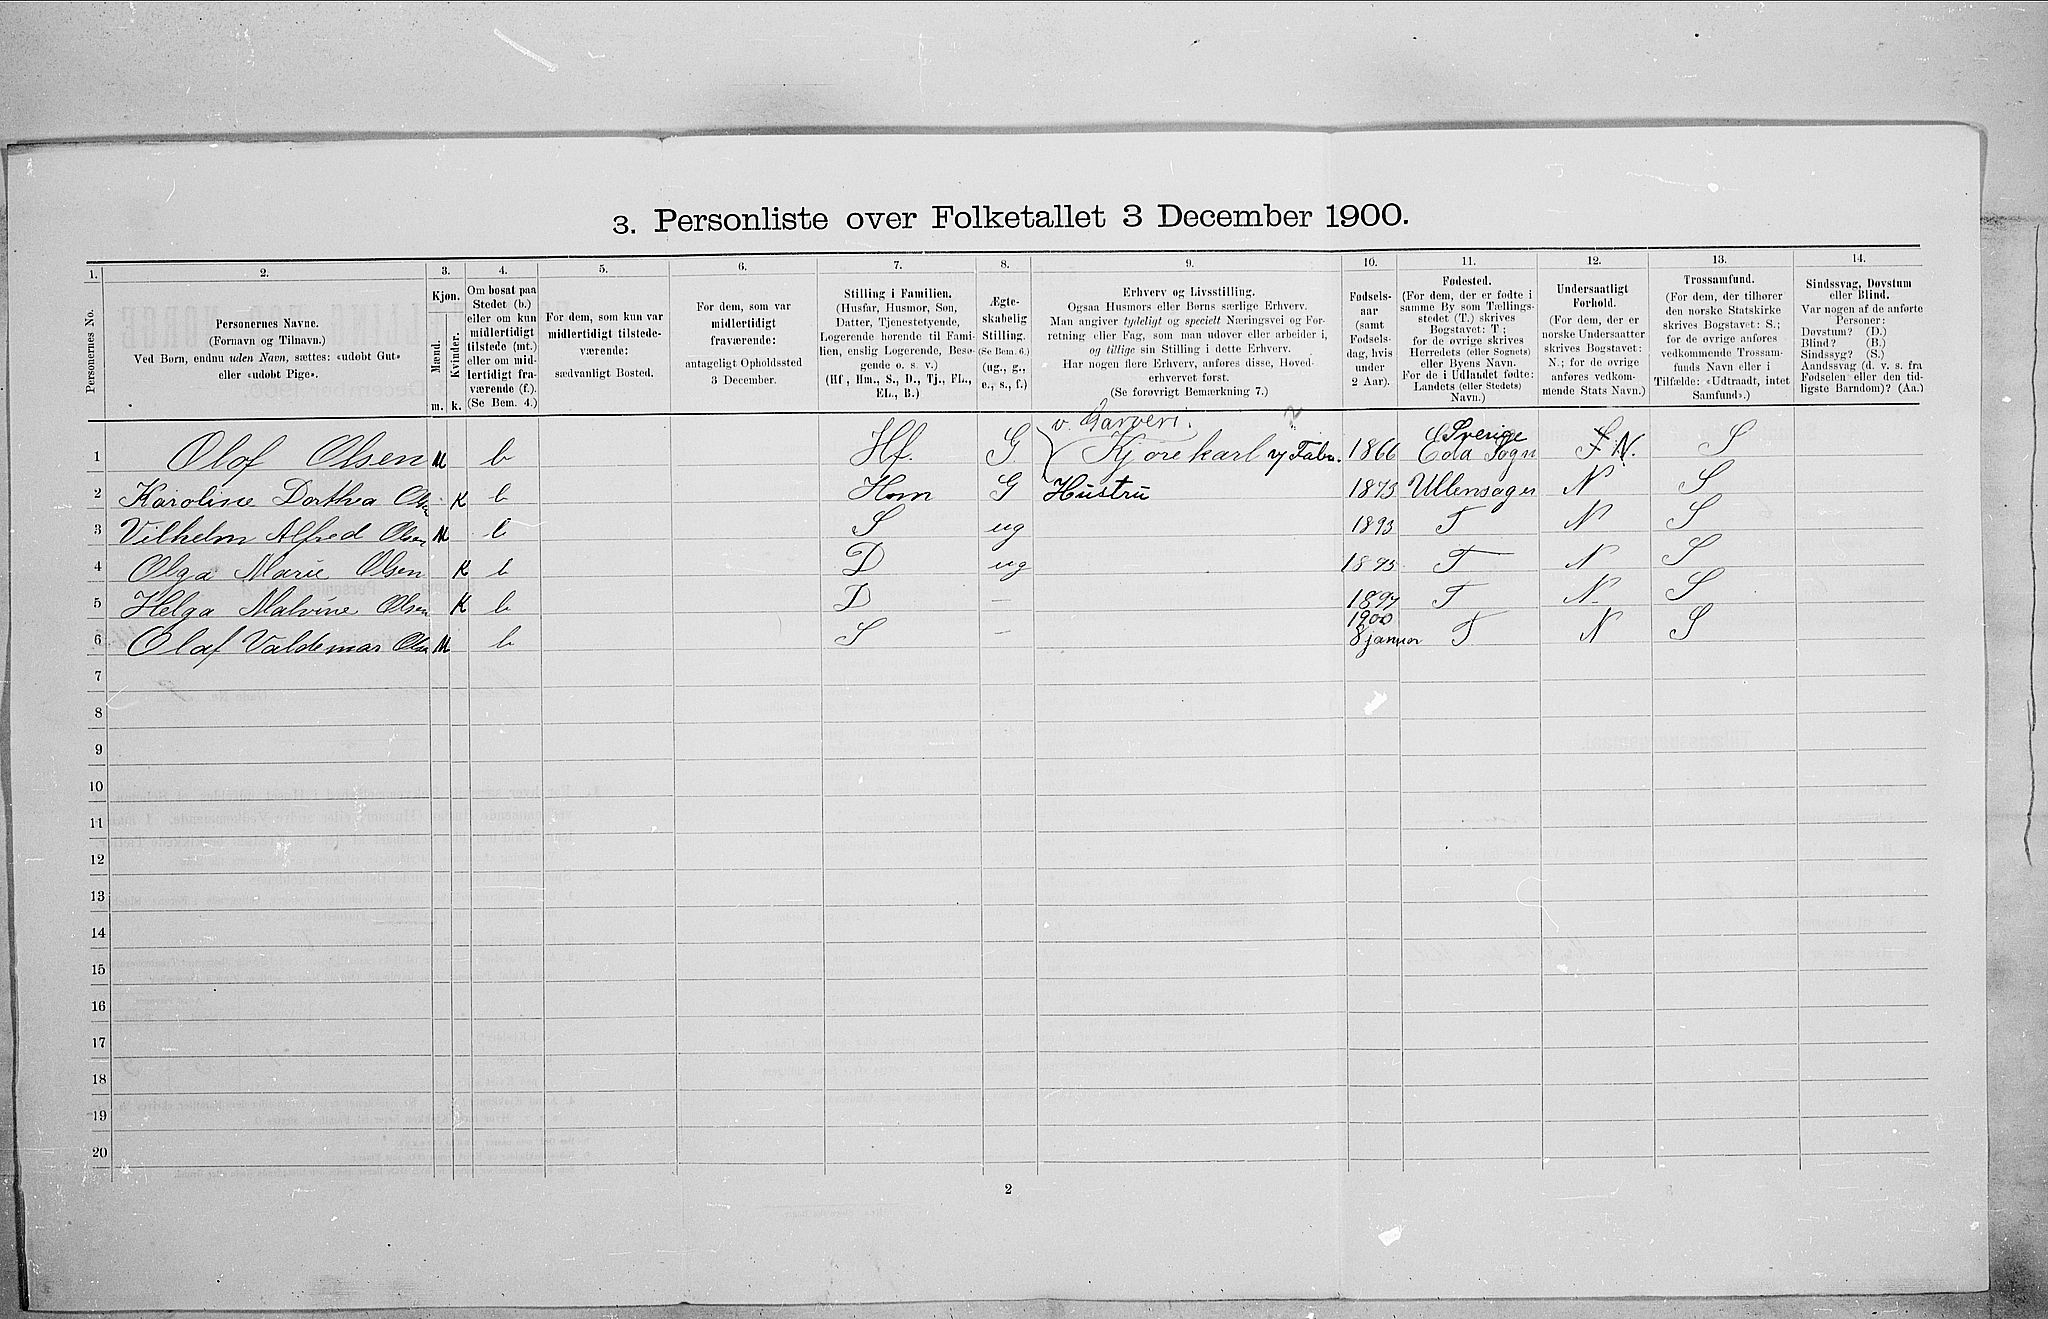 3. Personliste over Folketallet 3 December 1900.
1. 2. 3. 4. 5. 6. 7. 8. 9. 10. 11. 12. 13. 14.
Personernes No.
Personernes Navne.
(Fornavn og Tilnavn.)
Ved Børn, endnu uden Navn, sættes: «udøbt Gut»
eller «udøbt Pige».
Kjøn.
Mænd.
Kvinder.
m. k.
Om bosat paa
Stedet (b.)
eller om kun
midlertidigt
tilstede (mt.)
eller om mid-
lertidigt fra-
værende (f.).
(Se Bem. 4.)
For dem, som kun var
midlertidigt tilstede-
værende:
sædvanligt Bosted.
For dem, som var
midlertidigt
fraværende:
antageligt Opholdssted
3 December.
Stilling i Familien.
(Husfar, Husmor, Søn,
Datter, Tjenestetyende,
Logerende hørende til Fami-
lien, enslig Logerende, Besø-
gende o. s. v.)
(Hf, Hm., S., D., Tj., FL.,
EL., B.)
Ægte-
skabelig
Stilling.
(Se Bem. 6.)
(ug., g.,
e., s., f.)
Erhverv og Livsstilling.
Ogsaa Husmors eller Børns særlige Erhverv.
Man angiver tydeligt og specielt Næringsvei og For-
retning eller Fag, som man udøver eller arbeider i,
og tillige sin Stilling i dette Erhverv.
Har nogen flere Erhverv, anføres disse, Hoved-
erhvervet først.
(Se forøvrigt Bemærkning 7.)
Fødsels-
aar
(samt
Fødsels-
dag, hvis
under
2 Aar).
Fødested.
(For dem, der er fødte i
samme By som Tællings-
stedet (T.) skrives
Bogstavet: T.;
for de øvrige skrives
Herredets (eller Sognets)
eller Byens Navn.
For de i Udlandet fødte:
Landets (eller Stedets)
Navn.)
Undersaatligt
Forhold.
(For dem, der er
norske Undersaatter
skrives Bogstavet:
N.; for de øvrige
anføres vedkom-
mende Stats Navn.)
Trossamfund.
(For dem, der tilhører
den norske Statskirke
skrives Bogstavet: S.;
for de øvrige anføres
vedkommende Trossam-
funds Navn eller i
Tilfælde: «Udtraadt, intet
Samfund».)
Sindssvag, Døvstum
eller Blind.
Var nogen af de anførte
Personer:
Døvstum? (D.)
Blind? (B.)
Sindssyg? (S.)
Aandssvag (d. v. s. fra
Fødselen eller den tid-
ligste Barndom)? (Aa.)
v. Garveri. ?
1 Olof Olsen M b Hf. G Kjørekarl v/ Fabr. 1866 Sverige Eda Sogn N. S
2 Karoline Dorthea Olsen K b Hm G Hustru 1873 Ullensager N S
3 Vilhelm Alfred Olsen M b S ug 1893 T N S
4 Olga Marie Olsen K b D ug 1895 T N S
5 Helga Malvine Olsen K b D — 1897 T N S
6 Olaf Valdemar Olsen M b S — 1900 8 januor T N S
7
8
9
10
11
12
13
14
15
16
17
18
19
20
2